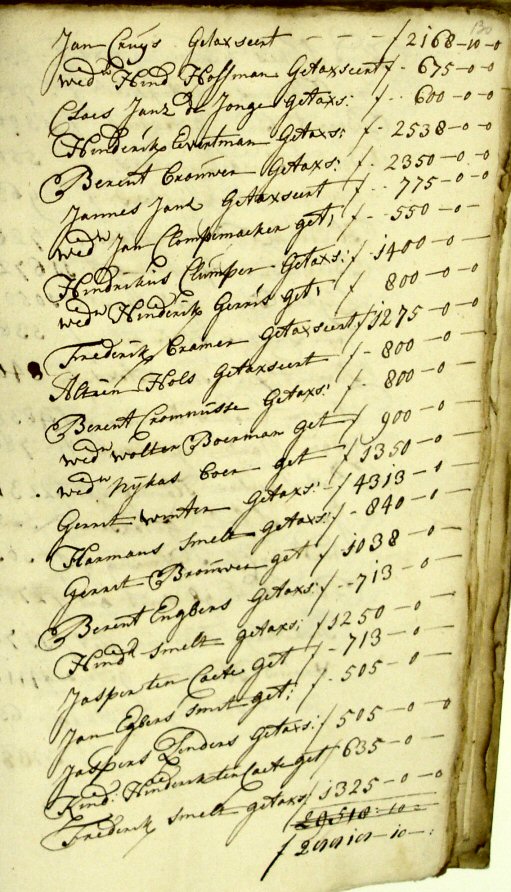 Jan Cruÿs Getaxseert - - - f 2168-10-0
wedᵉ Hind Hofsman Getaxseert f - 675-0-0
Claes Janz de Jonge getaxs: f - 600-0-0
Hinderik Evertman Getaxs: f - 2538-0-0
Berent Brouwer Getaxs: f - 2350-0-0
Jannes Janz Getaxseert f - 775-0-0
wedᵉ Jan Clompemaeker get: f - 550-0-
Hindrikus Clumper Getaxs: f - 1400-0-
wedᵉ Hinderik Gerris get: f 800-0-0
Frederik Cramer Getaxseert f 1275-0-0
Altien Hols Getaxseert f - 800-0-
Berent Cromnisse Getaxs: f - 800-0-
wedᵉ wolter Boerman get f 900-0-
wedᵉ Boer get f 1350-0-
Gerrit winter getaxs: - f 4313-0-
Harmans Smelt getaxs: f - 840-0-
Gerrit Brouwer get f 1038-0-
Berent Engbers getaxs: f - 713-0-
Hindᵏ Smelt getaxs: f 1250-0-
Jasper ten Caete get f - 713-0-
Jan Egbers Smit get: f - 505-0-
Jaspers Getaxs: f 505-0-0
Kind: Hinderik ten Caete get f 635-0-
Frederik Smelt getaxs f 1325-0-0
-10-
f -10-: